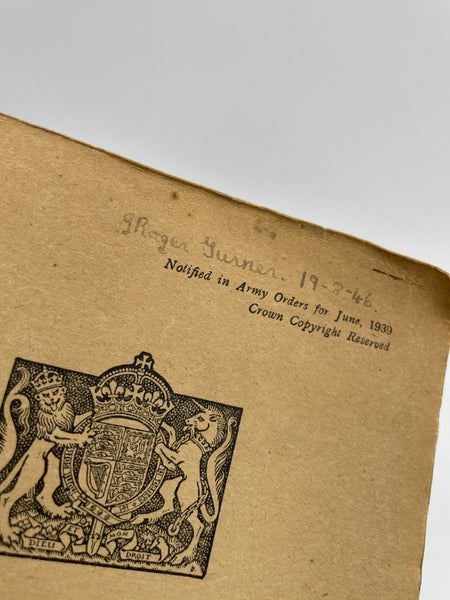 GRoger Turner. 19-3-46.
Notified in Army Orders for June, 1939
Crown Copyright Reserved
DIEU
MON
DROIT